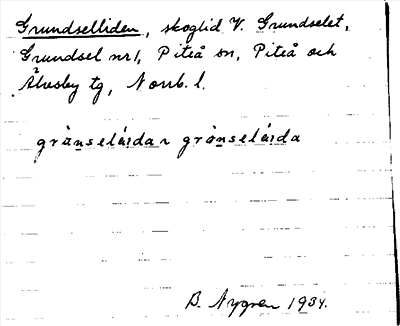 Grundselliden, skoglid V. Grundselet,
Grundsel nr 1, Piteå sn, Piteå och
Älvsby tg, Norrb. l.
grànseláıdan grònseláıda
B. Nygren 1934.